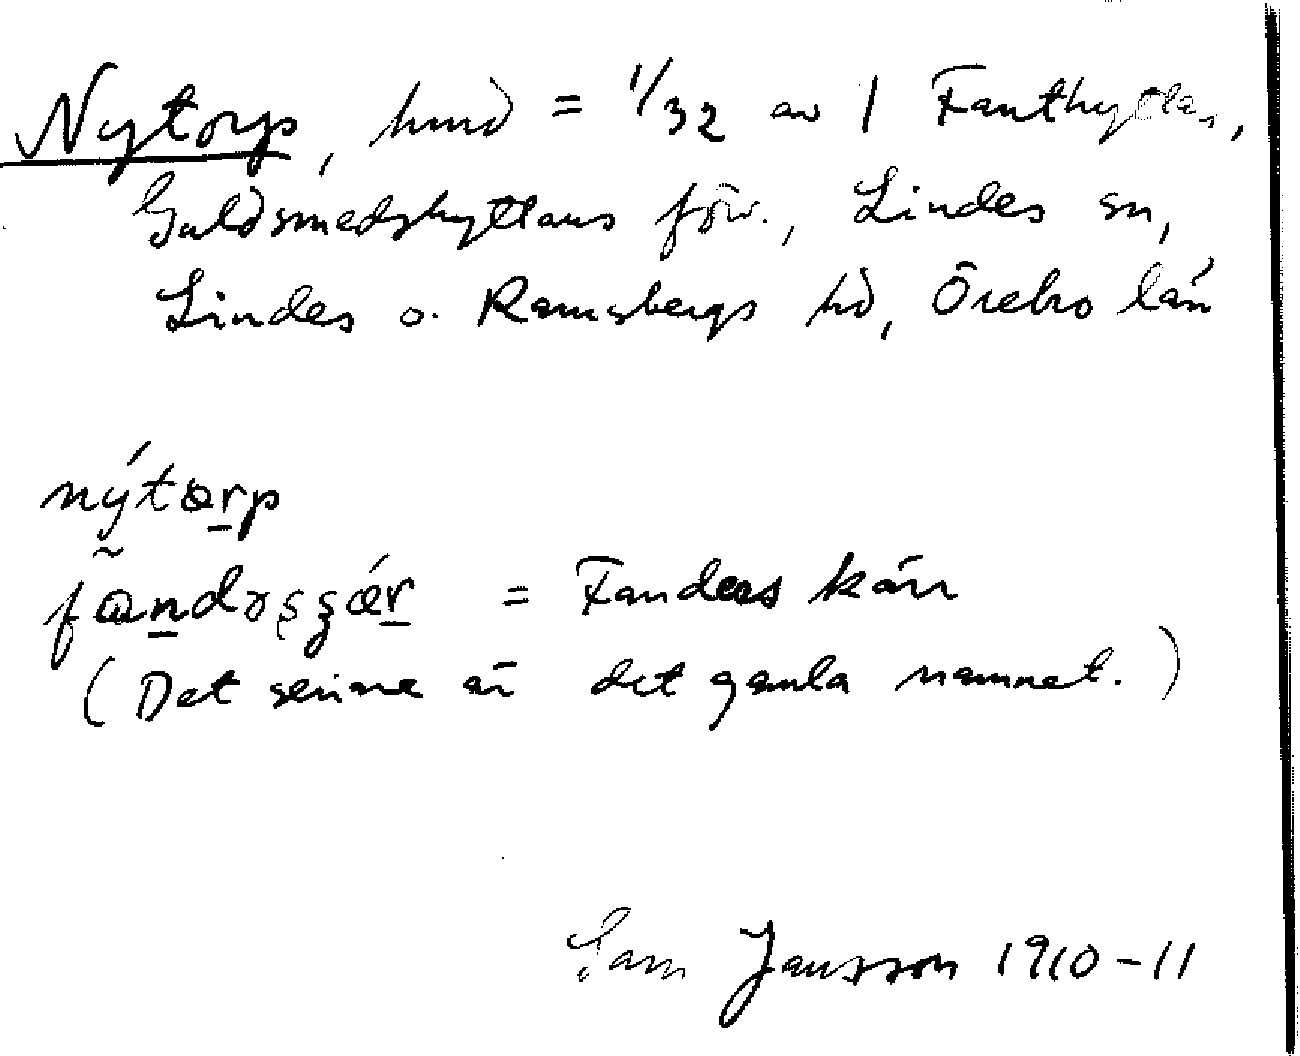 Nytorp, hmd = 1/32 av 1 Fanthyttan,
Guldsmedshyttans förs., Lindes sn,
Lindes o. Ramsbergs hd, Örebro län
nýtərp
= Fanders kärr
(Det senare är det gamla namnet.)
Sam Jansson 1910-11